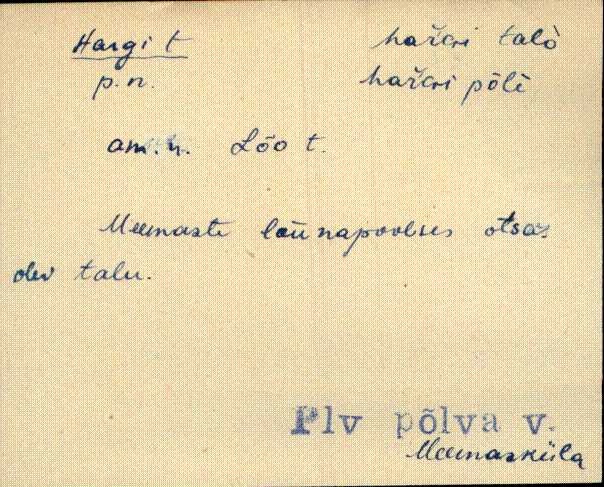 Hargi t hařɢi talò
p.n. hařɢi põlè
am.n. Lõo t.
Meemaste lõunapoolses otsas
olev talu.
Plv põlva v.
Meemasküla